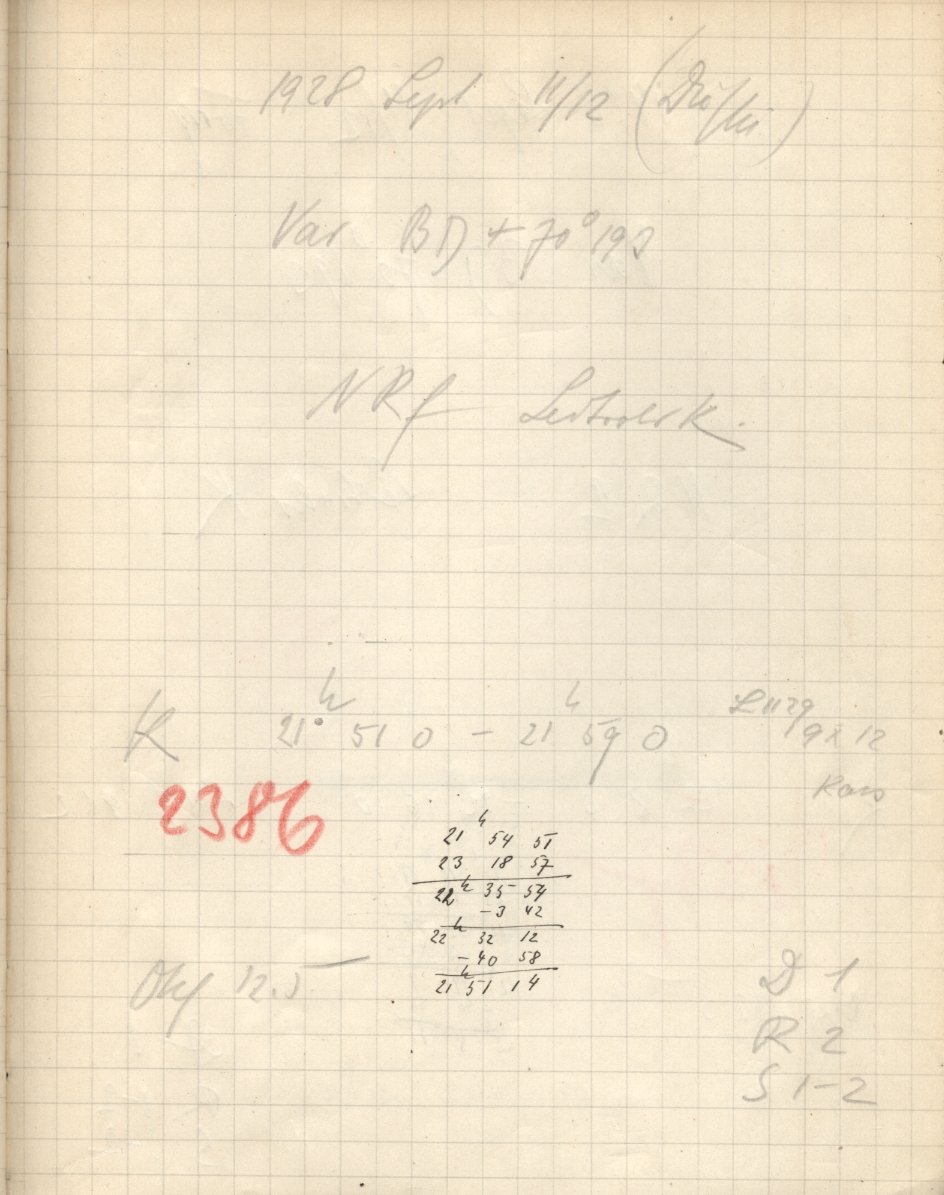 1928 Sept 11/12
Var BD + 70° 193
NRf
K 21h 51 0 - 21h 59 0
9x12
2386
21h 54 51
23 18 57
22h 35 54
-3 42
22h 32 12
-40 58
21h 51 14
12.5
D 1
R 2
S 1-2